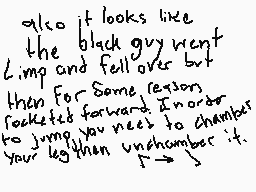 also it looks like
the black guy went
Limp and fell over but
then for some reason
rocketed forward. In order
to jump, you need to chamber
your leg then unchamber it.